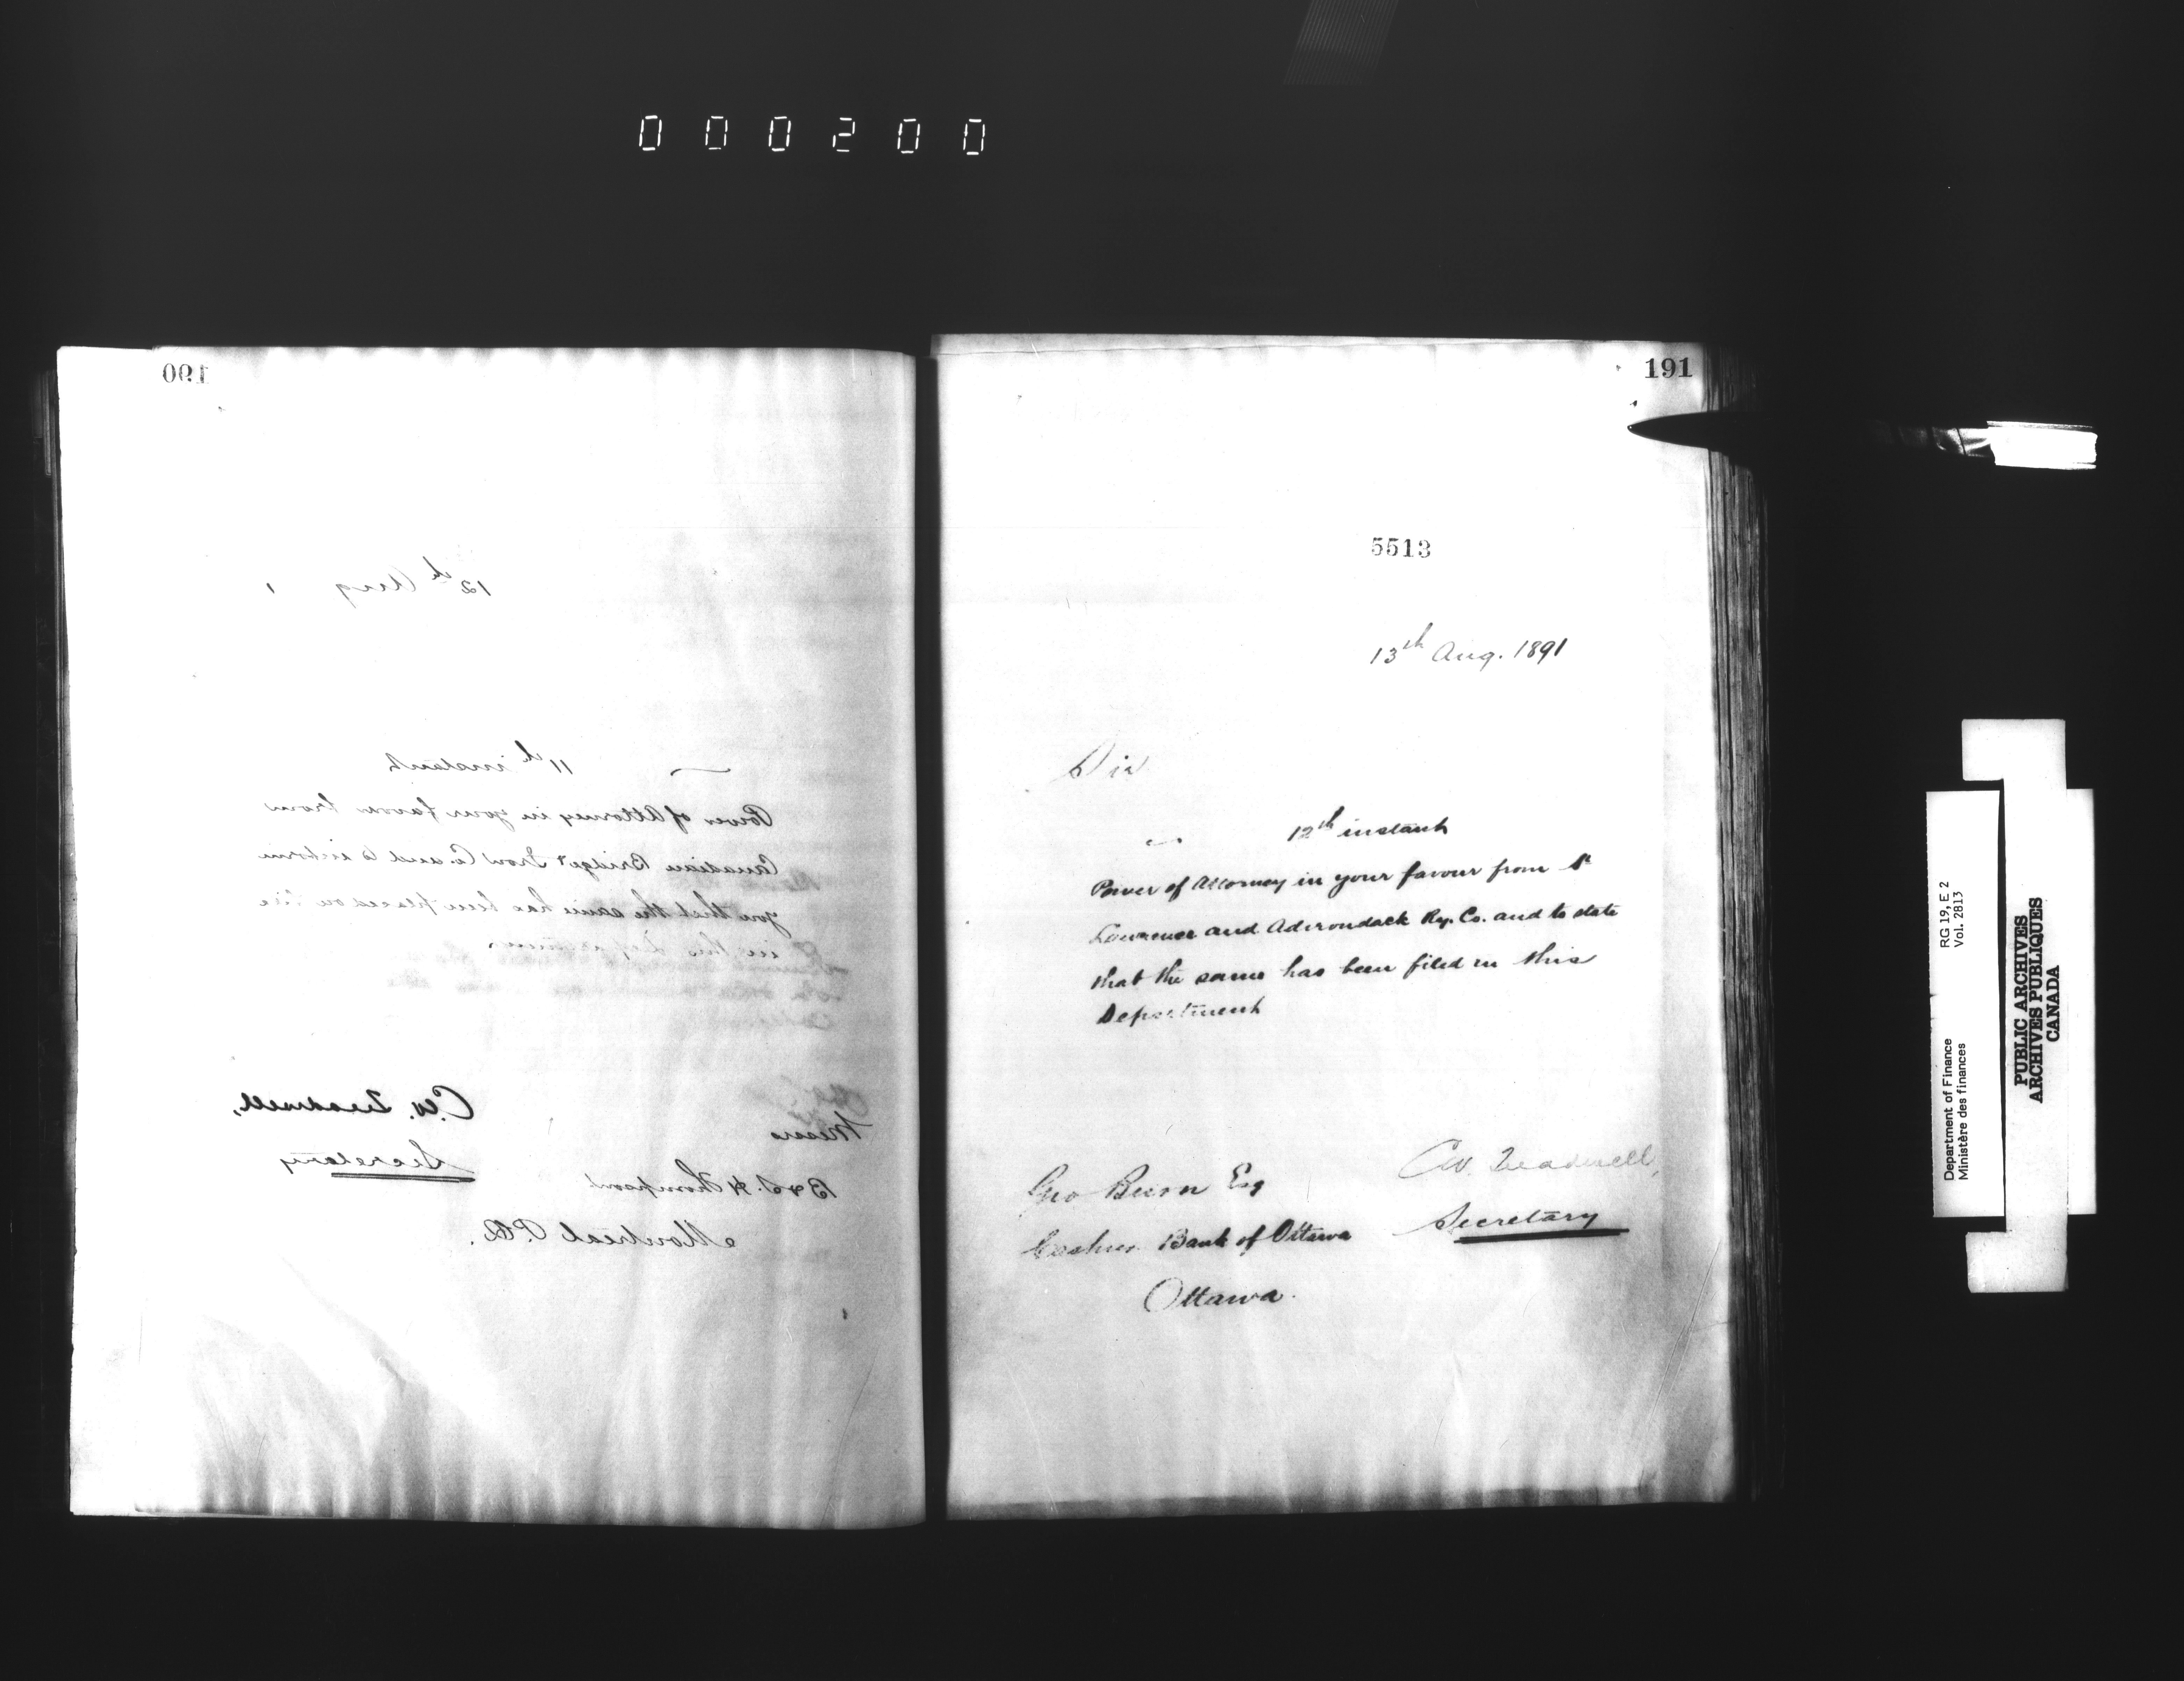 000200
190
12th Aug
11th instant
Power of Attorney in your favour from
Canadian Bridge & Iron Co. and to inform
you that the same has been placed on file
in this Department
C.W. Treadwell,
Secretary
Messrs
Thompson
Montreal P.Q.
191
5513
13th Aug. 1891
Sir
12th instant
Power of Attorney in your favour from St
Lawrence and Adirondack Ry. Co. and to state
that the same has been filed in this
Department
C.W. Treadwell,
Secretary
Geo Burn Esq
Cashier Bank of Ottawa
Ottawa.
Department of Finance
Ministère des finances
RG 19, E 2
Vol. 2813
PUBLIC ARCHIVES
ARCHIVES PUBLIQUES
CANADA